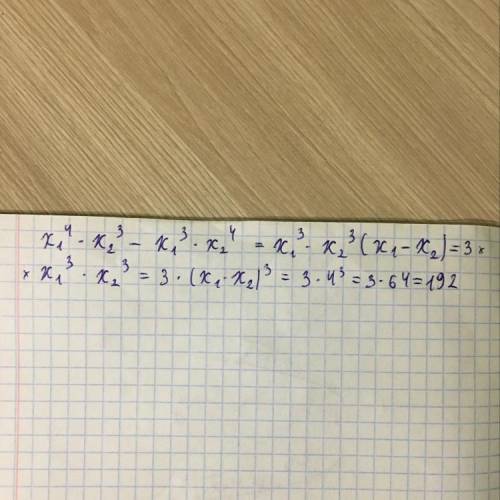 x₁⁴ · x₂³ − x₁³ · x₂⁴ = x₁³ · x₂³ (x₁ − x₂) = 3 ×
× x₁³ · x₂³ = 3 · (x₁ · x₂)³ = 3 · 4³ = 3 · 64 = 192